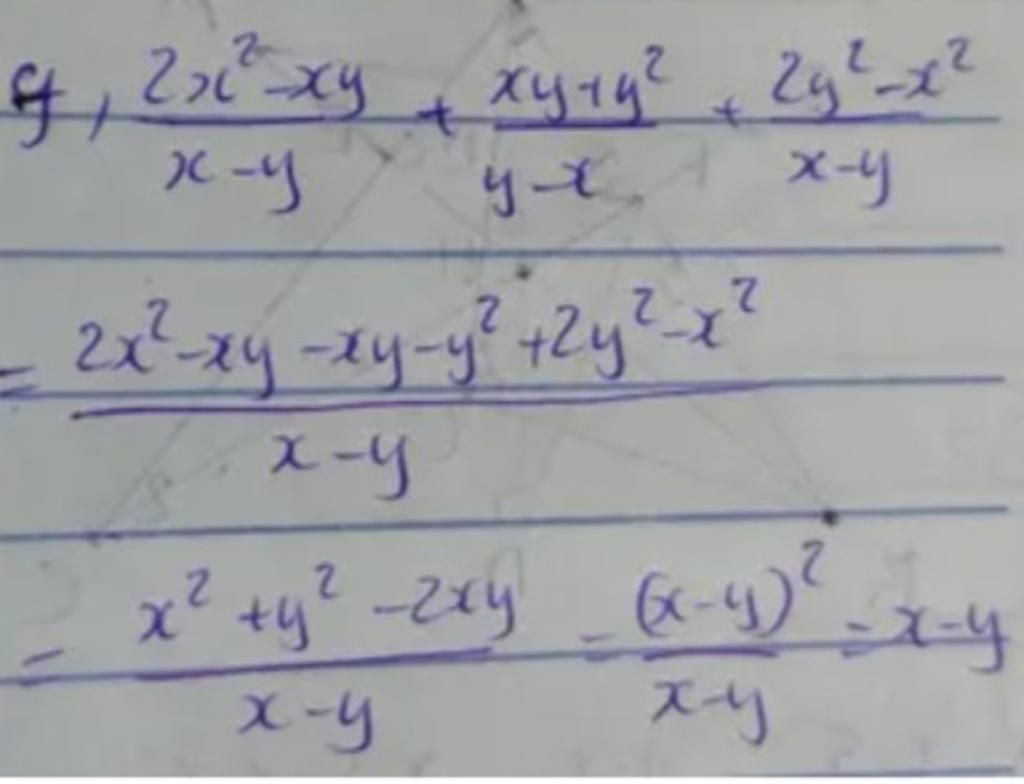 g, (2x² - xy)/(x - y) + (xy + y²)/(y - x) + (2y² - x²)/(x - y)
= (2x² - xy - xy - y² + 2y² - x²)/(x - y)
= (x² + y² - 2xy)/(x - y) = (x - y)²/(x - y) = x - y